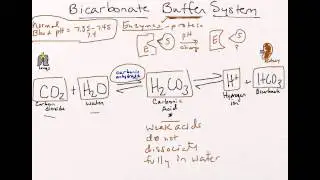 Bicarbonate Buffer System
Normal
Blood pH = 7.35-7.45
7.4
Enzymes - protein
pH
charge
E S
E S
?
lungs
kidney
carbonic
anhydrase
CO2 + H2O ⇌ H2CO3 ⇌ H+ + HCO3-
Carbon
dioxide
water
Carbonic
Acid
Hydrogen
ion
Bicarbonate
weak acids
do not
dissociate
fully in water